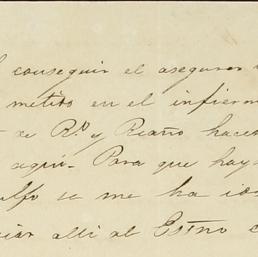 conseguir el asegurar
metido en el infier
de R.º y Reaño hacer
aquí - Para que hay
se me ha
allí al Estno